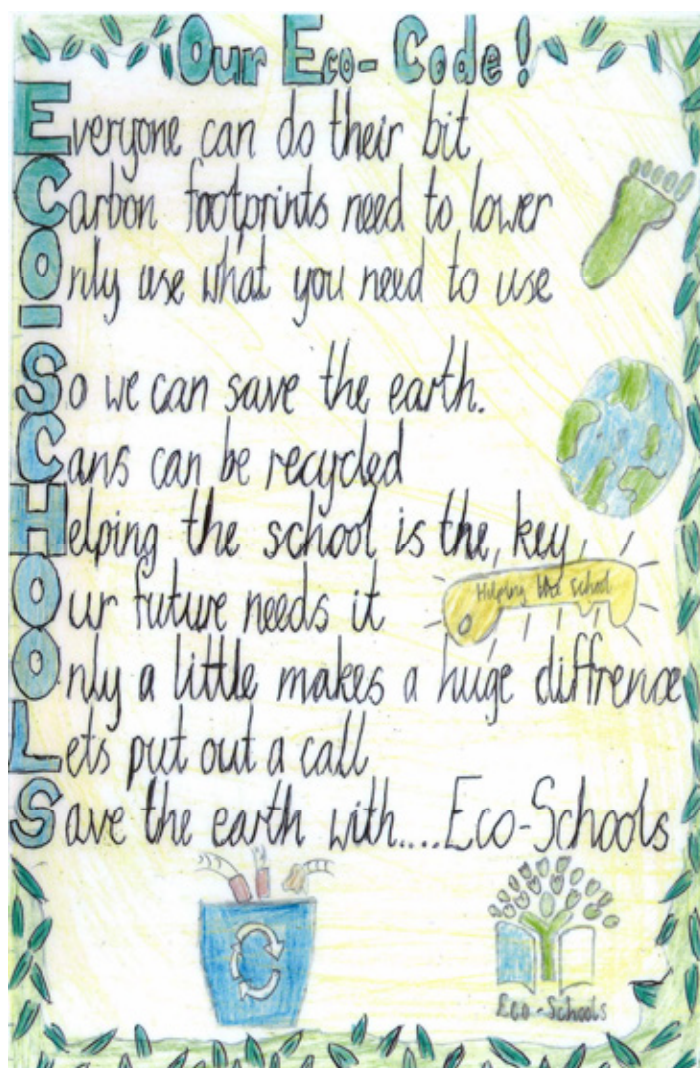 Our Eco- Code!
Everyone can do their bit
Carbon footprints need to lower
Only use what you need to use
-
So we can save the earth.
Cans can be recycled
Helping the school is the key
Helping school
Our future needs it
Only a little makes a huge diffrence
Lets put out a call
Save the earth with....Eco-Schools
Eco-Schools